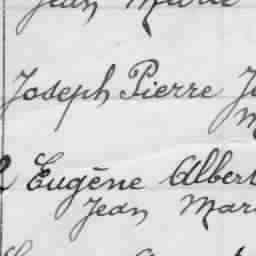 Jean Marie
Joseph Pierre
Eugène Albert
Jean Mar